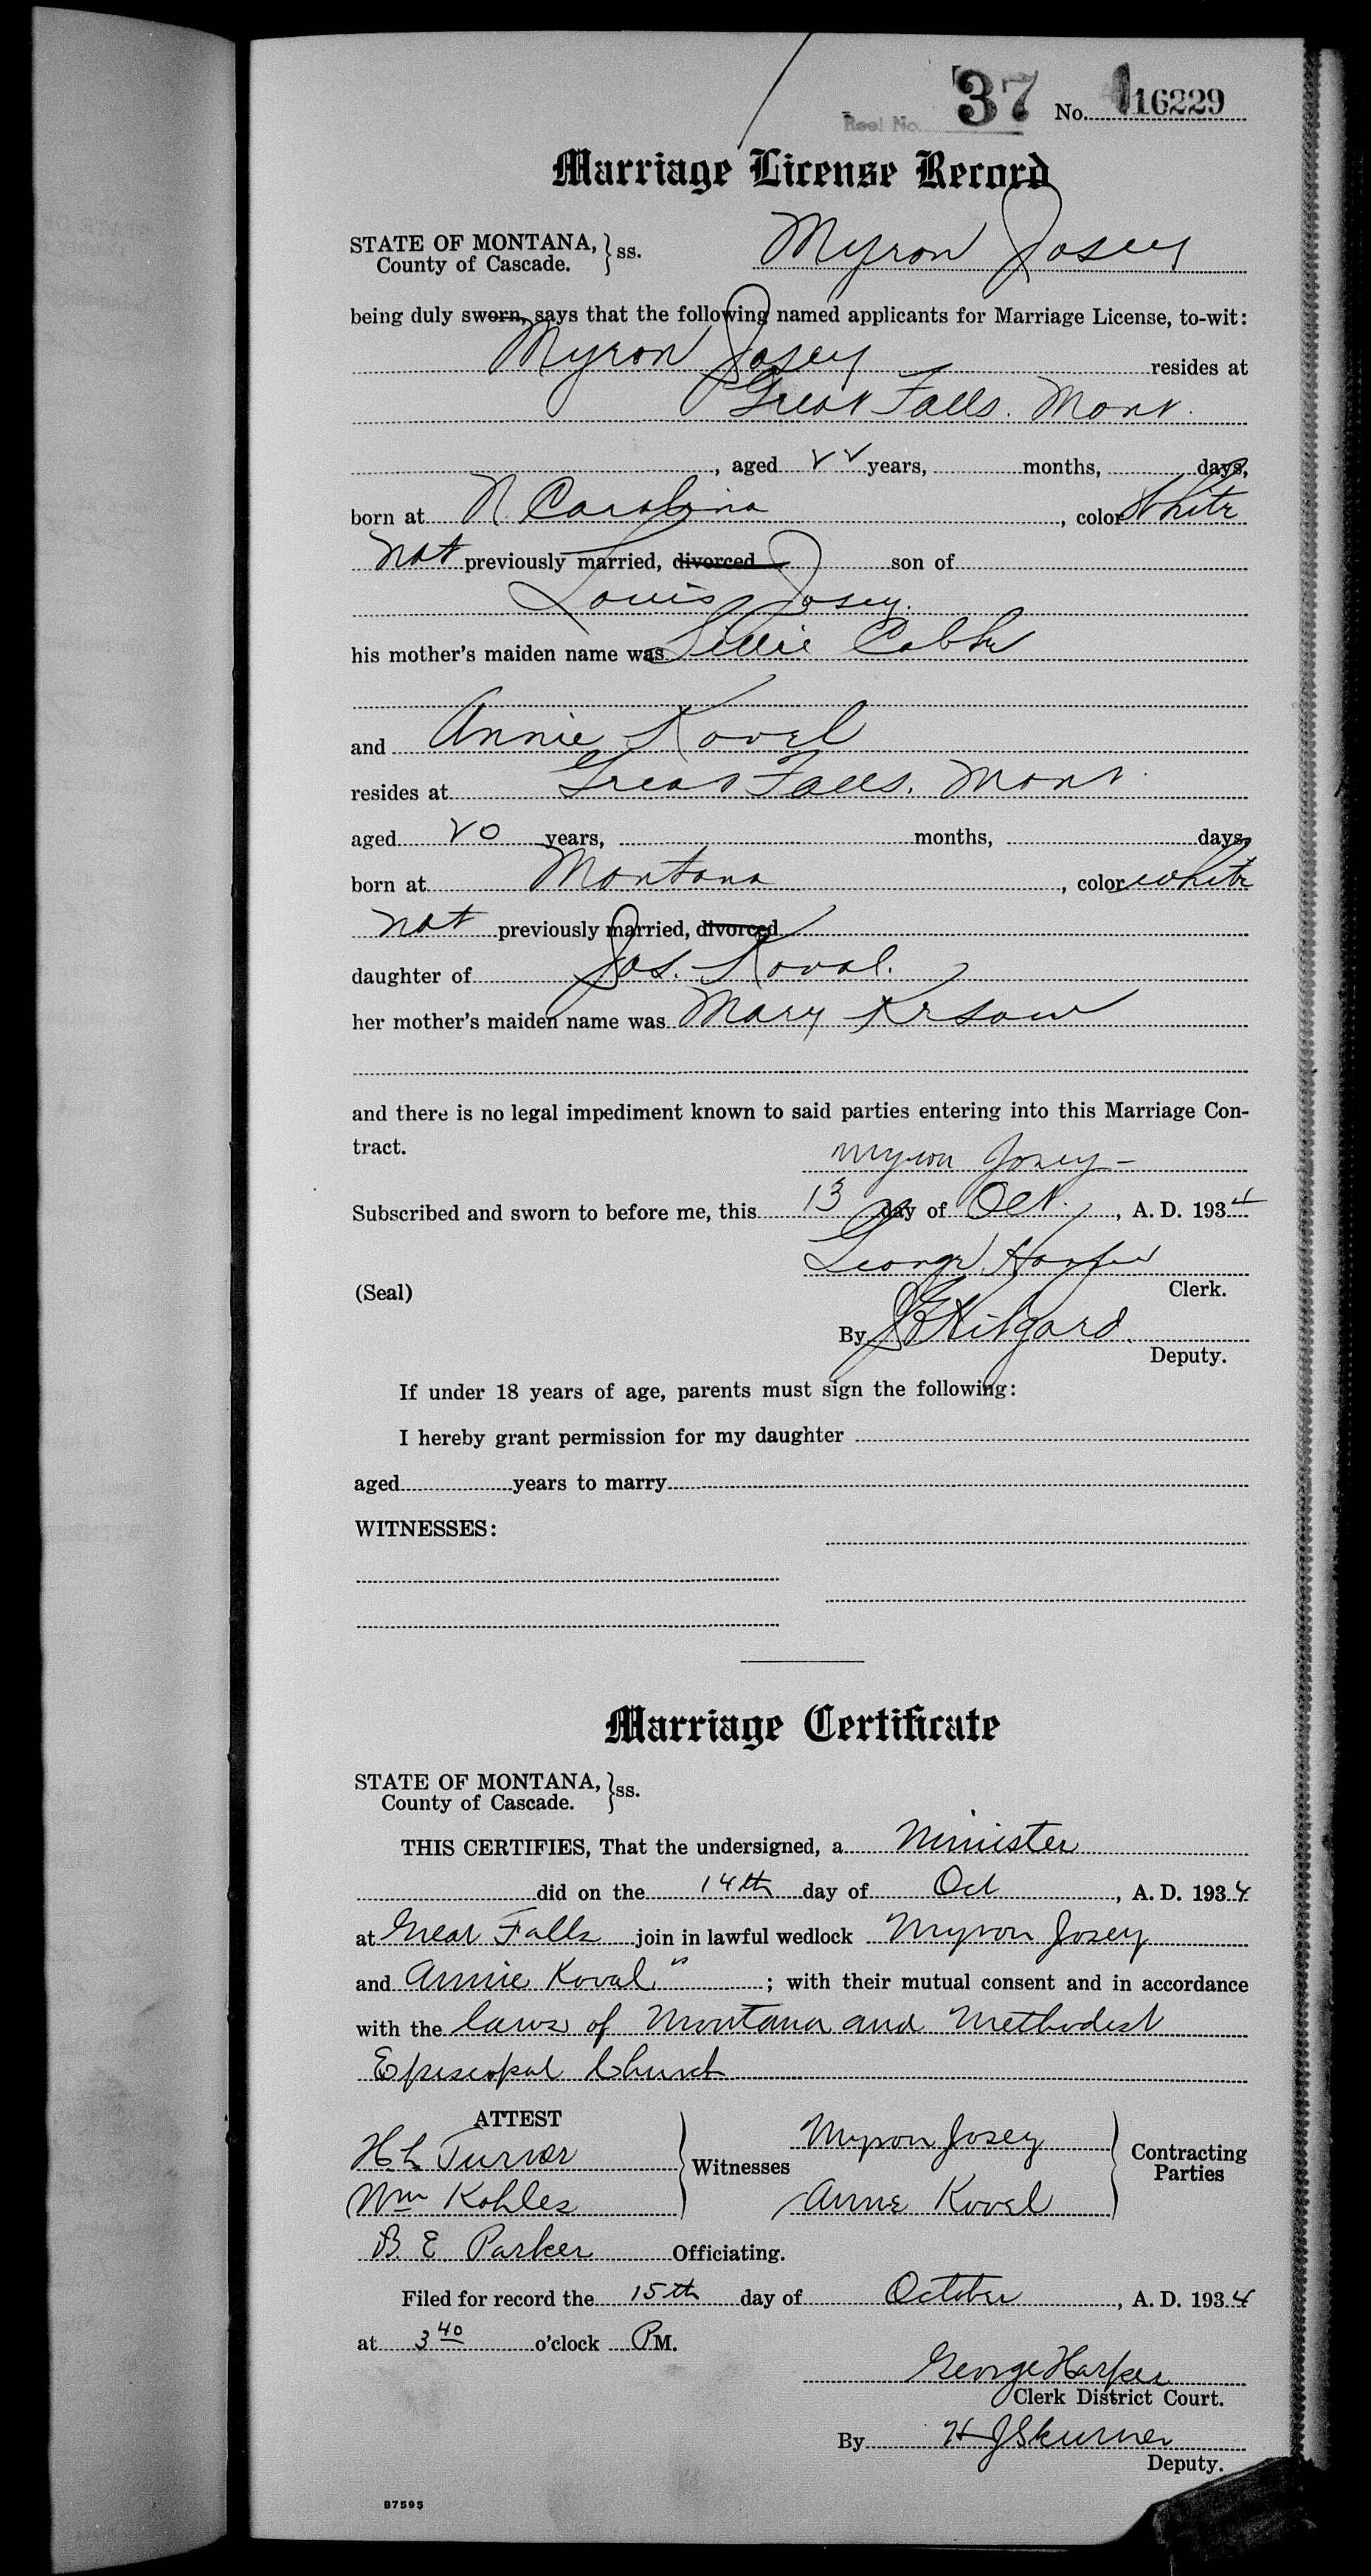 Reel No. 37 No. 16229
Marriage License Record
STATE OF MONTANA, } ss. Myron Josey
County of Cascade.
being duly sworn, says that the following named applicants for Marriage License, to-wit:
Myron Josey resides at
Great Falls. Mont.
, aged 22 years, months, days,
born at N. Carolina , color White
not previously married, divorced son of
Louis Josey.
his mother's maiden name was Lillie
and Annie Kovel
resides at Great Falls. Mont.
aged 20 years, months, days,
born at Montana , color white
not previously married, divorced
daughter of Jos. Koval.
her mother's maiden name was Mary
and there is no legal impediment known to said parties entering into this Marriage Con-
tract.
Myron Josey
Subscribed and sworn to before me, this 13 day of Oct. , A. D. 1934
George Harper
(Seal) Clerk.
By Hilgard.
Deputy.
If under 18 years of age, parents must sign the following:
I hereby grant permission for my daughter
aged years to marry
WITNESSES:
Marriage Certificate
STATE OF MONTANA, } ss.
County of Cascade.
THIS CERTIFIES, That the undersigned, a Minister
did on the 14th day of Oct , A. D. 1934
at Great Falls join in lawful wedlock Myron Josey
and Annie Koval ; with their mutual consent and in accordance
with the laws of Montana and Methodist
Episcopal Church
ATTEST
H L Turner Witnesses Myron Josey Contracting
Wm Kohles Annie Kovel Parties
B. E. Parker Officiating.
Filed for record the 15th day of October , A. D. 1934
at 3 40 o'clock P M.
George Harper
Clerk District Court.
By H J Skurner
Deputy.
B7595